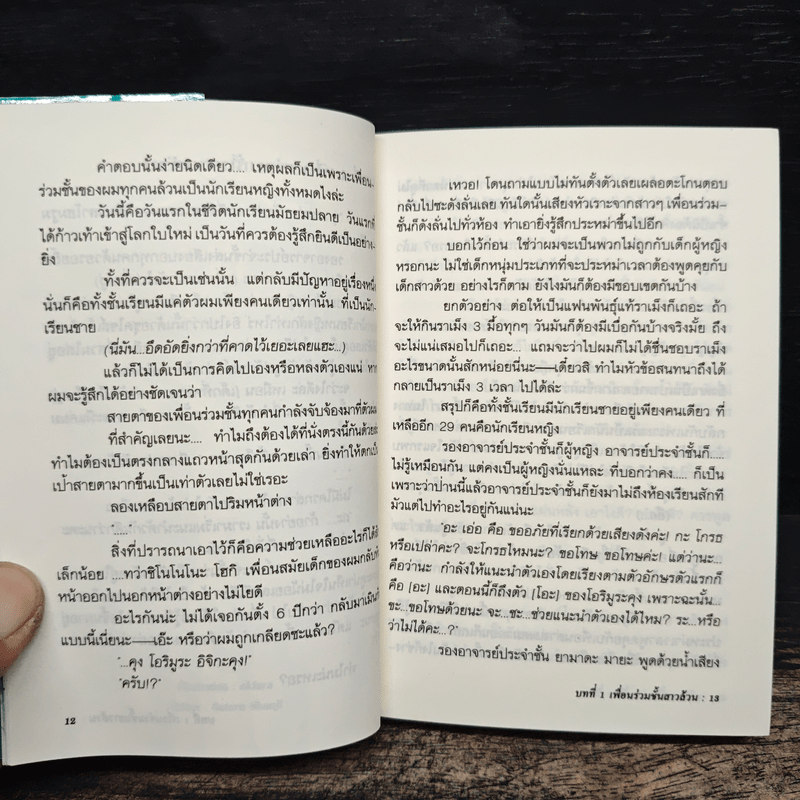 คำตอบนั้นง่ายนิดเดียว.... เหตุผลก็เป็นเพราะเพื่อน-
ร่วมชั้นของผมทุกคนล้วนเป็นนักเรียนหญิงทั้งหมดไงล่ะ
วันนี้คือวันแรกในชีวิตนักเรียนมัธยมปลาย วันแรกที่
ได้ก้าวเท้าเข้าสู่โลกใบใหม่ เป็นวันที่ควรต้องรู้สึกยินดีเป็นอย่าง-
ยิ่ง
ทั้งที่ควรจะเป็นเช่นนั้น แต่กลับมีปัญหาอยู่เรื่องหนึ่ง
นั่นก็คือทั้งชั้นเรียนมีแค่ตัวผมเพียงคนเดียวเท่านั้น ที่เป็นนัก-
เรียนชาย
(นี่มัน...อึดอัดยิ่งกว่าที่คาดไว้เยอะเลยแฮะ...)
แล้วก็ไม่ได้เป็นการคิดไปเองหรือหลงตัวเองแน่
ผมจะรู้สึกได้อย่างชัดเจนว่า
สายตาของเพื่อนร่วมชั้นทุกคนกำลังจับจ้องมาที่ตัวผม
ที่สำคัญเลยนะ.... ทำไมถึงต้องได้ที่นั่งตรงนี้กันด้วย
ทำไมต้องเป็นตรงกลางแถวหน้าสุดกันด้วยเล่า ยิ่งทำให้ตกเป็น
เป้าสายตามากขึ้นเป็นเท่าตัวเลยไม่ใช่เรอะ
ลองเหลือบสายตาไปริมหน้าต่าง
"....."
สิ่งที่ปรารถนาเอาไว้ก็คือความช่วยเหลืออะไรก็ได้
เล็กน้อย ....ทว่าชิโนโนโนะ โฮกิ เพื่อนสมัยเด็กของผมกลับ
หน้าออกไปนอกหน้าต่างอย่างไม่ไยดี
อะไรกันน่ะ ไม่ได้เจอกันตั้ง 6 ปีกว่า กลับมาเมิน
แบบนี้เนี่ยนะ——เอ๊ะ หรือว่าผมถูกเกลียดซะแล้ว?
"...คุง โอริมูระ อิจิกะคุง!"
"ครับ!?"
12
เหวอ! โดนถามแบบไม่ทันตั้งตัวเลยเผลอตะโกนตอบ
กลับไปซะดังลั่นเลย ทันใดนั้นเสียงหัวเราะจากสาวๆ เพื่อนร่วม-
ชั้นก็ดังลั่นไปทั่วห้อง ทำเอายิ่งรู้สึกประหม่าขึ้นไปอีก
บอกไว้ก่อน ใช่ว่าผมจะเป็นพวกไม่ถูกกับเด็กผู้หญิง
หรอกนะ ไม่ใช่เด็กหนุ่มประเภทที่จะประหม่าเวลาต้องพูดคุยกับ
เด็กสาวด้วย อย่างไรก็ตาม ยังไงมันก็ต้องมีขอบเขตกันบ้าง
ยกตัวอย่าง ต่อให้เป็นแฟนพันธุ์แท้ราเม็งก็เถอะ ถ้า
จะให้กินราเม็ง 3 มื้อทุกๆ วันมันก็ต้องมีเบื่อกันบ้างจริงมั้ย ถึง
จะไม่แน่เสมอไปก็เถอะ... แถมจะว่าไปผมก็ไม่ได้ชื่นชอบราเม็ง
อะไรขนาดนั้นสักหน่อยนี่นะ——เดี๋ยวสิ ทำไมหัวข้อสนทนาถึงได้
กลายเป็นราเม็ง 3 เวลา ไปได้ล่ะ
สรุปก็คือทั้งชั้นเรียนมีนักเรียนชายอยู่เพียงคนเดียว ที่
เหลืออีก 29 คนคือนักเรียนหญิง
รองอาจารย์ประจำชั้นก็ผู้หญิง อาจารย์ประจำชั้นก็.....
ไม่รู้เหมือนกัน แต่คงเป็นผู้หญิงนั่นแหละ ที่บอกว่าคง..... ก็เป็น
เพราะว่าป่านนี้แล้วอาจารย์ประจำชั้นก็ยังมาไม่ถึงห้องเรียนสักที
มัวแต่ไปทำอะไรอยู่กันแน่นะ
"อะ เอ่อ คือ ขออภัยที่เรียกด้วยเสียงดังค่ะ! กะ โกรธ
หรือเปล่าคะ? จะโกรธไหมนะ? ขอโทษ ขอโทษค่ะ! แต่ว่านะ...
คือว่านะ กำลังให้แนะนำตัวเองโดยเรียงตามตัวอักษรตัวแรกก็
คือ [อะ] และตอนนี้ก็ถึงตัว [โอะ] ของโอริมูระคุง เพราะฉะนั้น...
ขะ...ขอโทษด้วยนะ จะ...ชะ...ช่วยแนะนำตัวเองได้ไหม? ระ...หรือ
ว่าไม่ได้คะ...?"
รองอาจารย์ประจำชั้น ยามาดะ มายะ พูดด้วยน้ำเสียง
บทที่ 1 เพื่อนร่วมชั้นสาวล้วน : 13